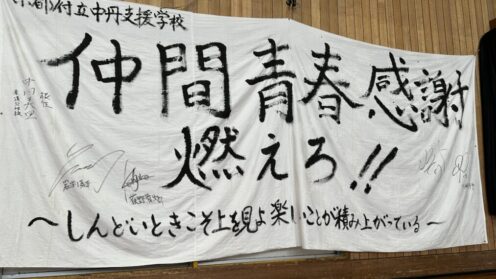 京都府立中丹支援学校
仲間 青春 感謝
燃えろ!!
～しんどいときこそ上を見よ 楽しいことが積み上がっている～